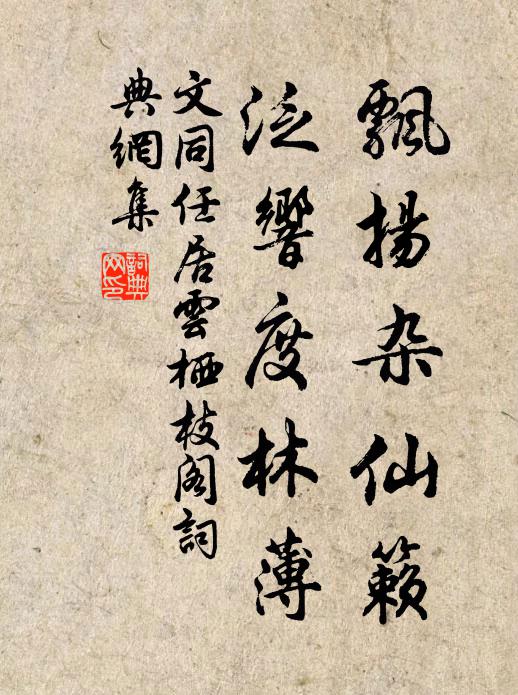 飄揚杂仙籟
泛響度林薄
文同任居雲栖枝阁詞
典網集
詞典网印